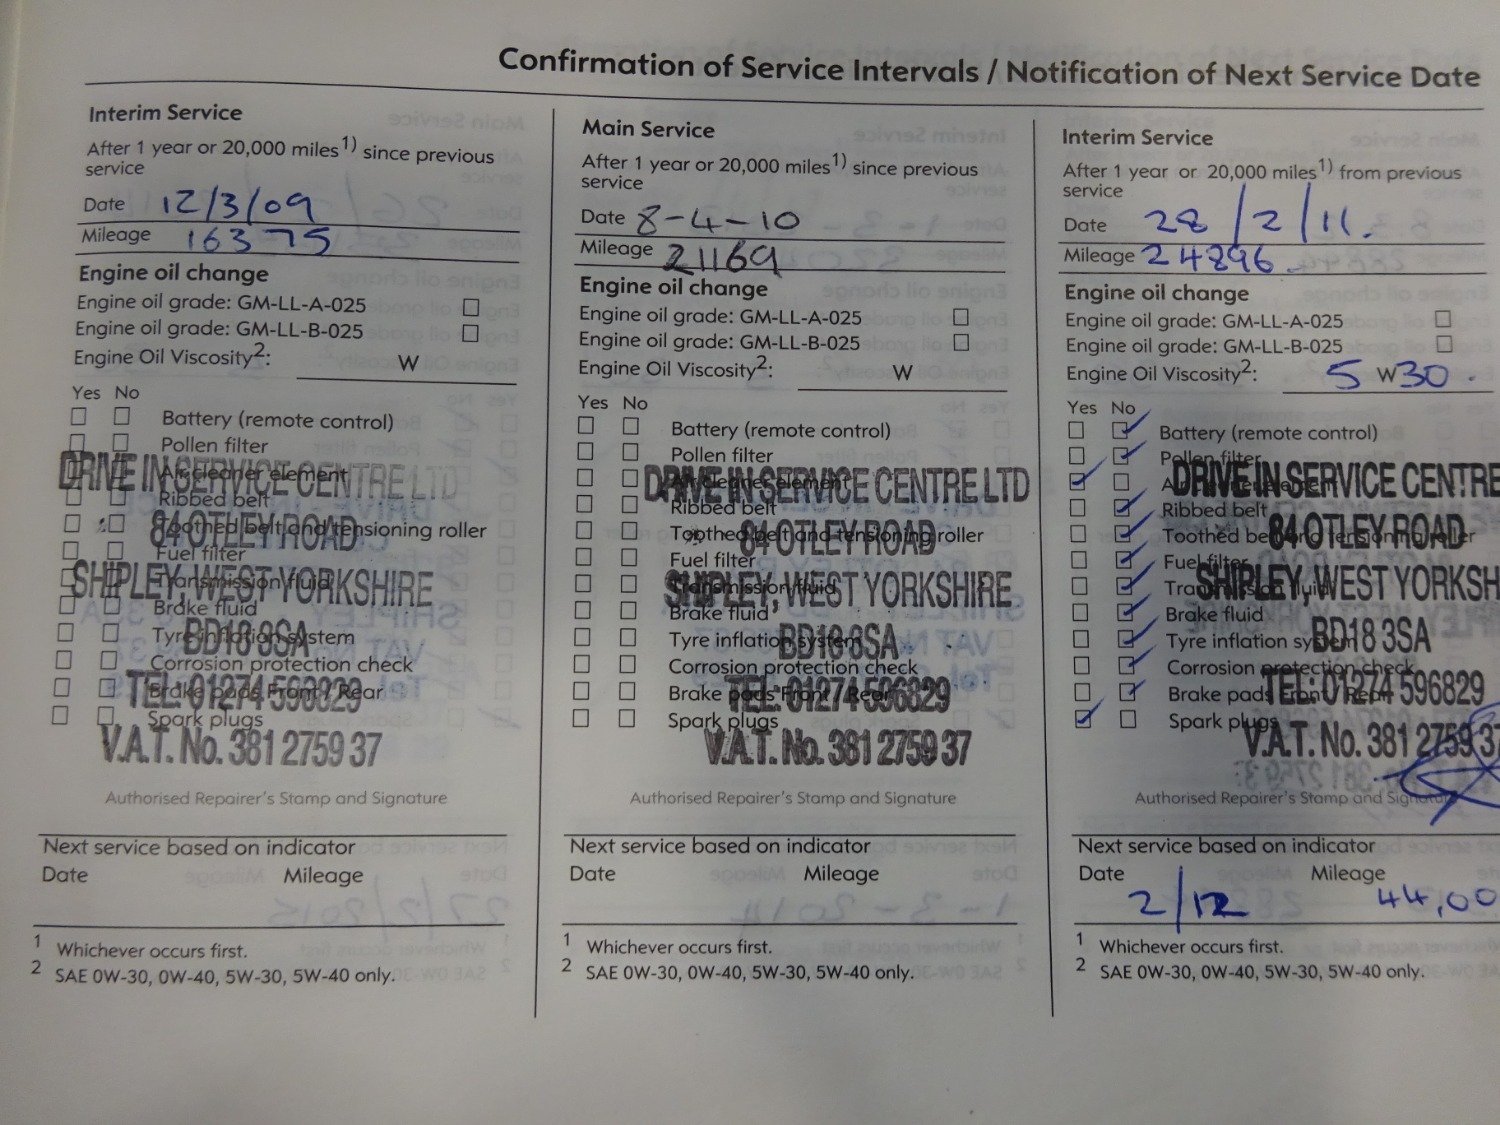 Confirmation of Service Intervals / Notification of Next Service Date
Interim Service
After 1 year or 20,000 miles1) since previous
service
Date 12/3/09
Mileage 16375
Engine oil change
Engine oil grade: GM-LL-A-025
Engine oil grade: GM-LL-B-025
Engine Oil Viscosity2: W
Yes No
Battery (remote control)
Pollen filter
Air cleaner element
Ribbed belt
Toothed belt and tensioning roller
Fuel filter
Transmission fluid
Brake fluid
Tyre inflation system
Corrosion protection check
Brake pads Front / Rear
Spark plugs
DRIVE IN SERVICE CENTRE LTD
84 OTLEY ROAD
SHIPLEY, WEST YORKSHIRE
BD18 3SA
TEL: 01274 596829
V.A.T. No. 381 2759 37
Authorised Repairer's Stamp and Signature
Next service based on indicator
Date Mileage
1 Whichever occurs first.
2 SAE 0W-30, 0W-40, 5W-30, 5W-40 only.
Main Service
After 1 year or 20,000 miles1) since previous
service
Date 8-4-10
Mileage 21169
Engine oil change
Engine oil grade: GM-LL-A-025
Engine oil grade: GM-LL-B-025
Engine Oil Viscosity2: W
Yes No
Battery (remote control)
Pollen filter
Air cleaner element
Ribbed belt
Toothed belt and tensioning roller
Fuel filter
Transmission fluid
Brake fluid
Tyre inflation system
Corrosion protection check
Brake pads Front / Rear
Spark plugs
DRIVE IN SERVICE CENTRE LTD
84 OTLEY ROAD
SHIPLEY, WEST YORKSHIRE
BD18 3SA
TEL: 01274 596829
V.A.T. No. 381 2759 37
Authorised Repairer's Stamp and Signature
Next service based on indicator
Date Mileage
1 Whichever occurs first.
2 SAE 0W-30, 0W-40, 5W-30, 5W-40 only.
Interim Service
After 1 year or 20,000 miles1) from previous
service
Date 28/2/11.
Mileage 24896
Engine oil change
Engine oil grade: GM-LL-A-025
Engine oil grade: GM-LL-B-025
Engine Oil Viscosity2: 5 W 30.
Yes No
Battery (remote control)
Pollen filter
Air cleaner element
Ribbed belt
Toothed belt and tensioning roller
Fuel filter
Transmission fluid
Brake fluid
Tyre inflation system
Corrosion protection check
Brake pads Front / Rear
Spark plugs
DRIVE IN SERVICE CENTRE
84 OTLEY ROAD
SHIPLEY, WEST YORKSH
BD18 3SA
TEL: 01274 596829
V.A.T. No. 381 2759 37
Authorised Repairer's Stamp and Signature
Next service based on indicator
Date Mileage
2/12 44,00
1 Whichever occurs first.
2 SAE 0W-30, 0W-40, 5W-30, 5W-40 only.